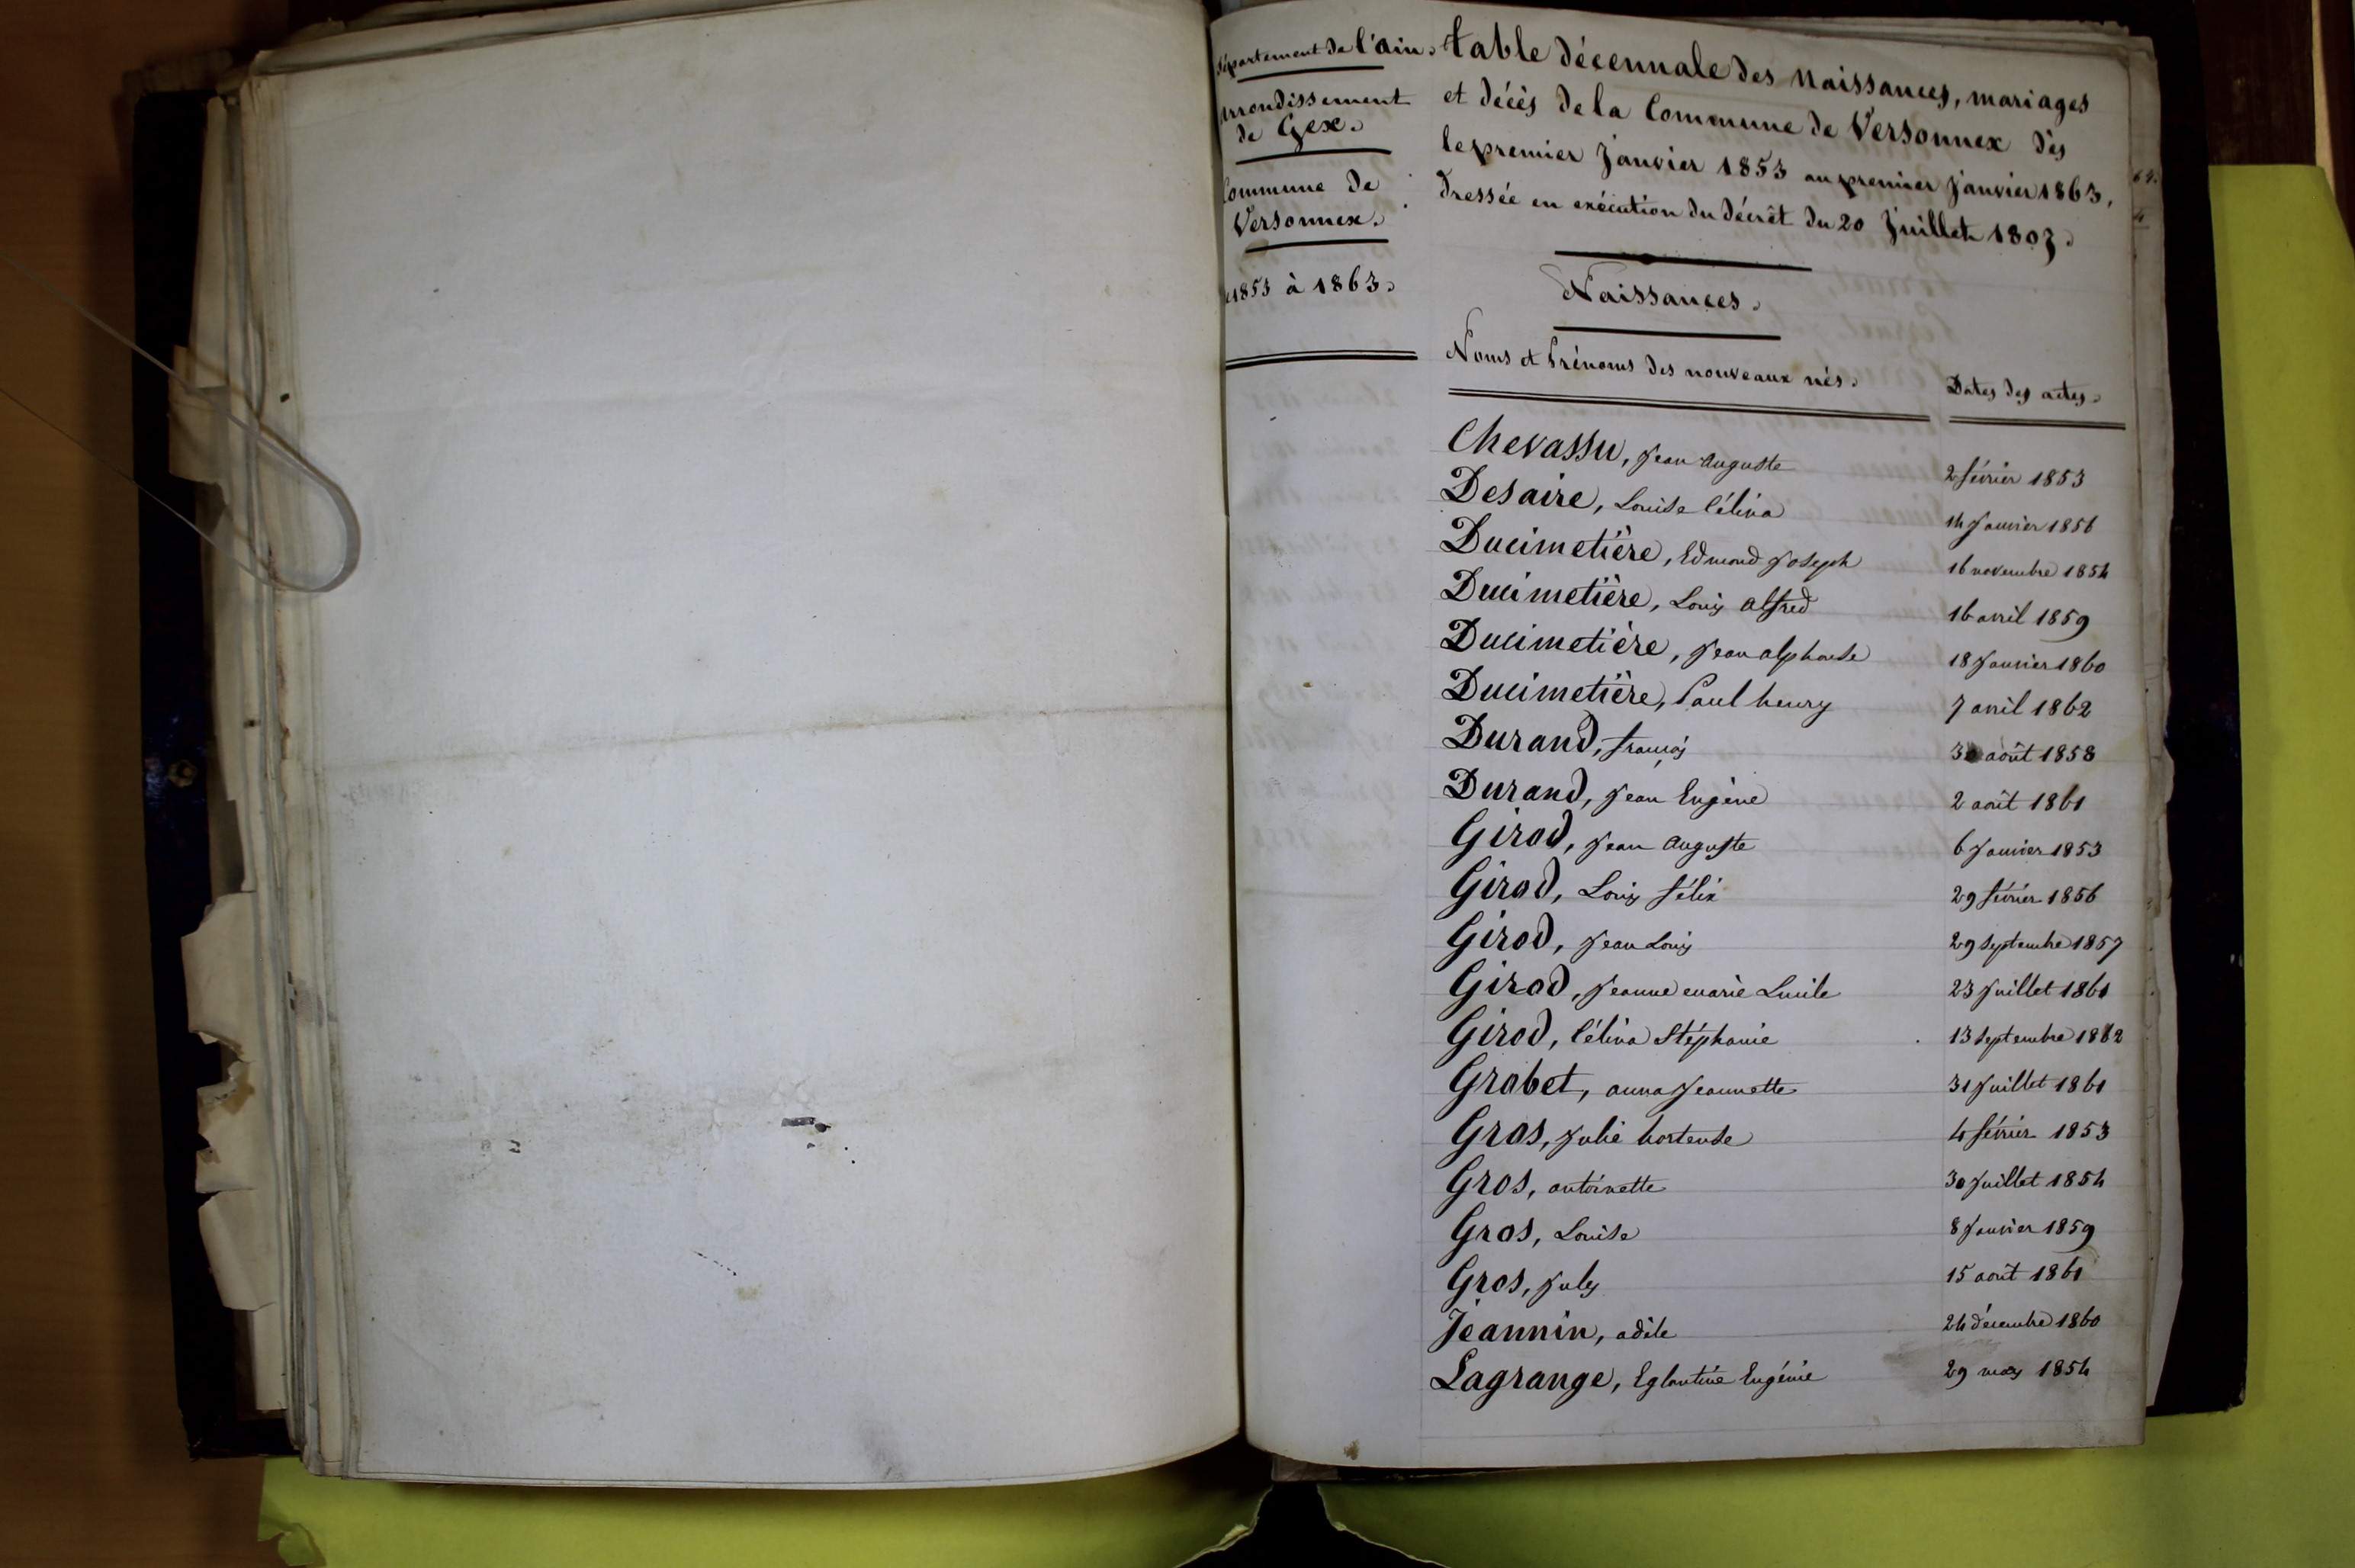 Département de l'ain.
arrondissement
de Gex.
Commune de
Versonnex.
1853 à 1863.
table décennale des Naissances, mariages
et décès de la Commune de Versonnex dès
le premier Janvier 1853 au premier Janvier 1863,
dressée en exécution du décrêt du 20 Juillet 1807.
Naissances.
Noms et Prénoms des nouveaux nés. Dates des actes.
Chevassu, Jean Auguste 2 février 1853
Desaire, Louise Célina 14 Janvier 1856
Ducimetière, Edmond Joseph 16 novembre 1854
Ducimetière, Louis alfred 16 avril 1859
Ducimetière, Jean alphonse 18 Janvier 1860
Ducimetière, Paul henry 7 avril 1862
Durand, françois août 1858
Durand, Jean Eugène 2 août 1861
Girod, Jean Auguste 6 Janvier 1853
Girod, Louis félix 29 février 1856
Girod, Jean Louis 29 Septembre 1857
Girod, Jeanne marie Lucile 23 Juillet 1861
Girod, Célina Stéphanie 13 Septembre 1862
Grobet, anna Jeannette 31 Juillet 1861
Gros, Julie hortense 4 février 1853
Gros, antoinette 30 Juillet 1854
Gros, Louise 8 Janvier 1859
Gros, Jules 15 août 1861
Jeannin, adèle 24 décembre 1860
Lagrange, Eglantine Eugénie 29 mars 1854